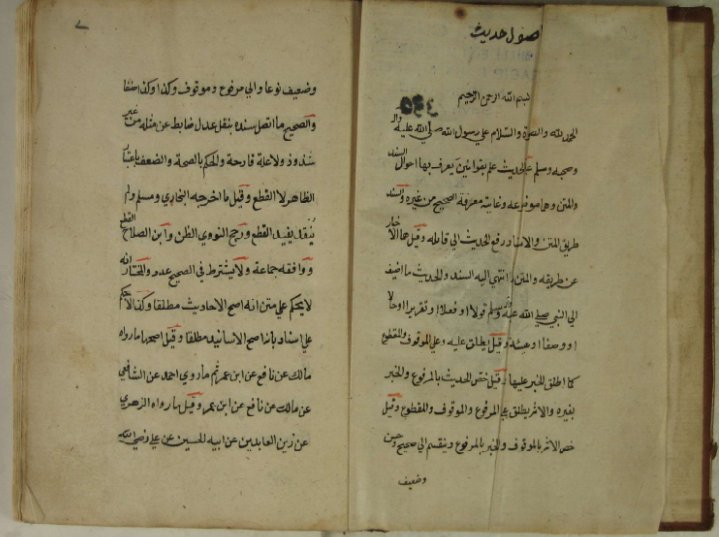 اصول حديث
بسم الله الرحمن الرحيم
الحمد لله والصلوة والسلام علي رسول الله صلي الله عليه واله
وصحبه وسلم علم الحديث علم بقوانين يعرف بها احوال السند
والمتن وهما موضوعه وغايته معرفة الصحيح من غيره والسند
طريق المتن والاسناد رفع الحديث الي قائله وقيل هما الاخبار
عن طريقه والمتن ما انتهي اليه السند والحديث ما اضيف
الي النبي صلي الله عليه وسلم قولا او فعلا او تقريرا او حالا
او وصفا او هيئة وقيل يطلق عليه وعلي الموقوف والمقطوع
كما اطلق الخبر عليها وقيل خص الحديث بالمرفوع والخبر
بغيره والاثر يطلق علي المرفوع والموقوف والمقطوع وقيل
خص الاثر بالموقوف والخبر بالمرفوع وينقسم الي صحيح وحسن
وضعيف
وضعيف نوعا والي مرفوع وموقوف وكذا وكذا
والصحيح ما اتصل سنده بنقل عدل ضابط عن مثله من غير
شذوذ ولا علة قادحة والحكم بالصحة والضعف باعتبار
الظاهر لا القطع وقيل ما اخرجه البخاري ومسلم ولم
ينقد يفيد القطع ورجح النووي الظن وابن الصلاح القطع
ووافقه جماعة ولا يشترط في الصحيح عدد والمختار انه
لا يحكم علي متن انه اصح الاحاديث مطلقا وكذا لا يحكم
علي اسناد بانه اصح الاسانيد مطلقا وقيل اصحها ما رواه
مالك عن نافع عن ابن عمر ثم ما روي احمد عن الشافعي
عن مالك عن نافع عن ابن عمر وقيل ما رواه الزهري
عن زين العابدين عن ابيه الحسين عن علي رضي الله